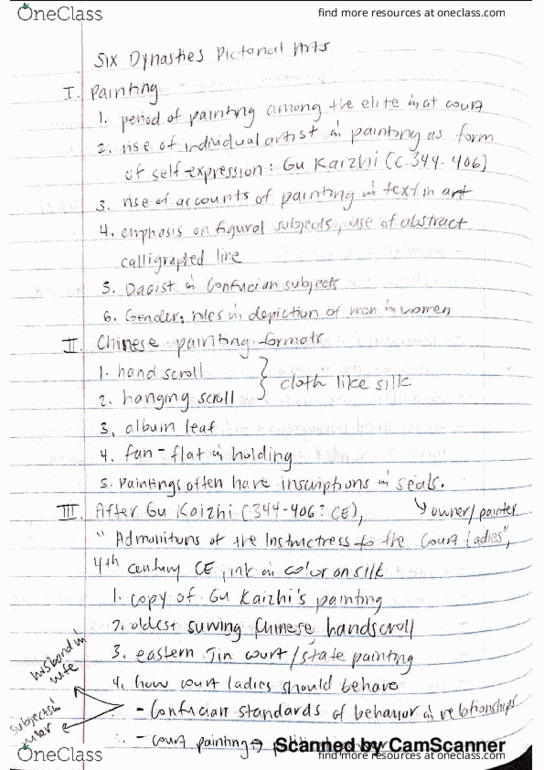 OneClass
find more resources at oneclass.com
Six Dynasties Pictorial Arts
I. Painting
1. period of painting among the elite in at court
2. rise of individual artist in painting as form
of self-expression: Gu Kaizhi (c. 344-406)
3. rise of accounts of painting in text in art
4. emphasis on figural subjects, use of abstract
calligraphed line
5. Daoist in Confucian subjects
6. Gender: roles in depiction of men in women
II. Chinese painting formats
1. hand scroll
2. hanging scroll } cloth like silk
3. album leaf
4. fan - flat in holding
5. Paintings often have inscriptions in seals.
↳ owner/painter
III. After Gu Kaizhi (344-406? CE),
"Admonitions of the Instructress to the Court Ladies",
4th century CE, ink in color on silk
1. copy of Gu Kaizhi's painting
2. oldest surviving Chinese handscroll
3. eastern Jin court/state painting
4. how court ladies should behave
husband in wife
- Confucian standards of behavior in relationships
subjects in ruler
- court painting →
Scanned by CamScanner
OneClass
find more resources at oneclass.com